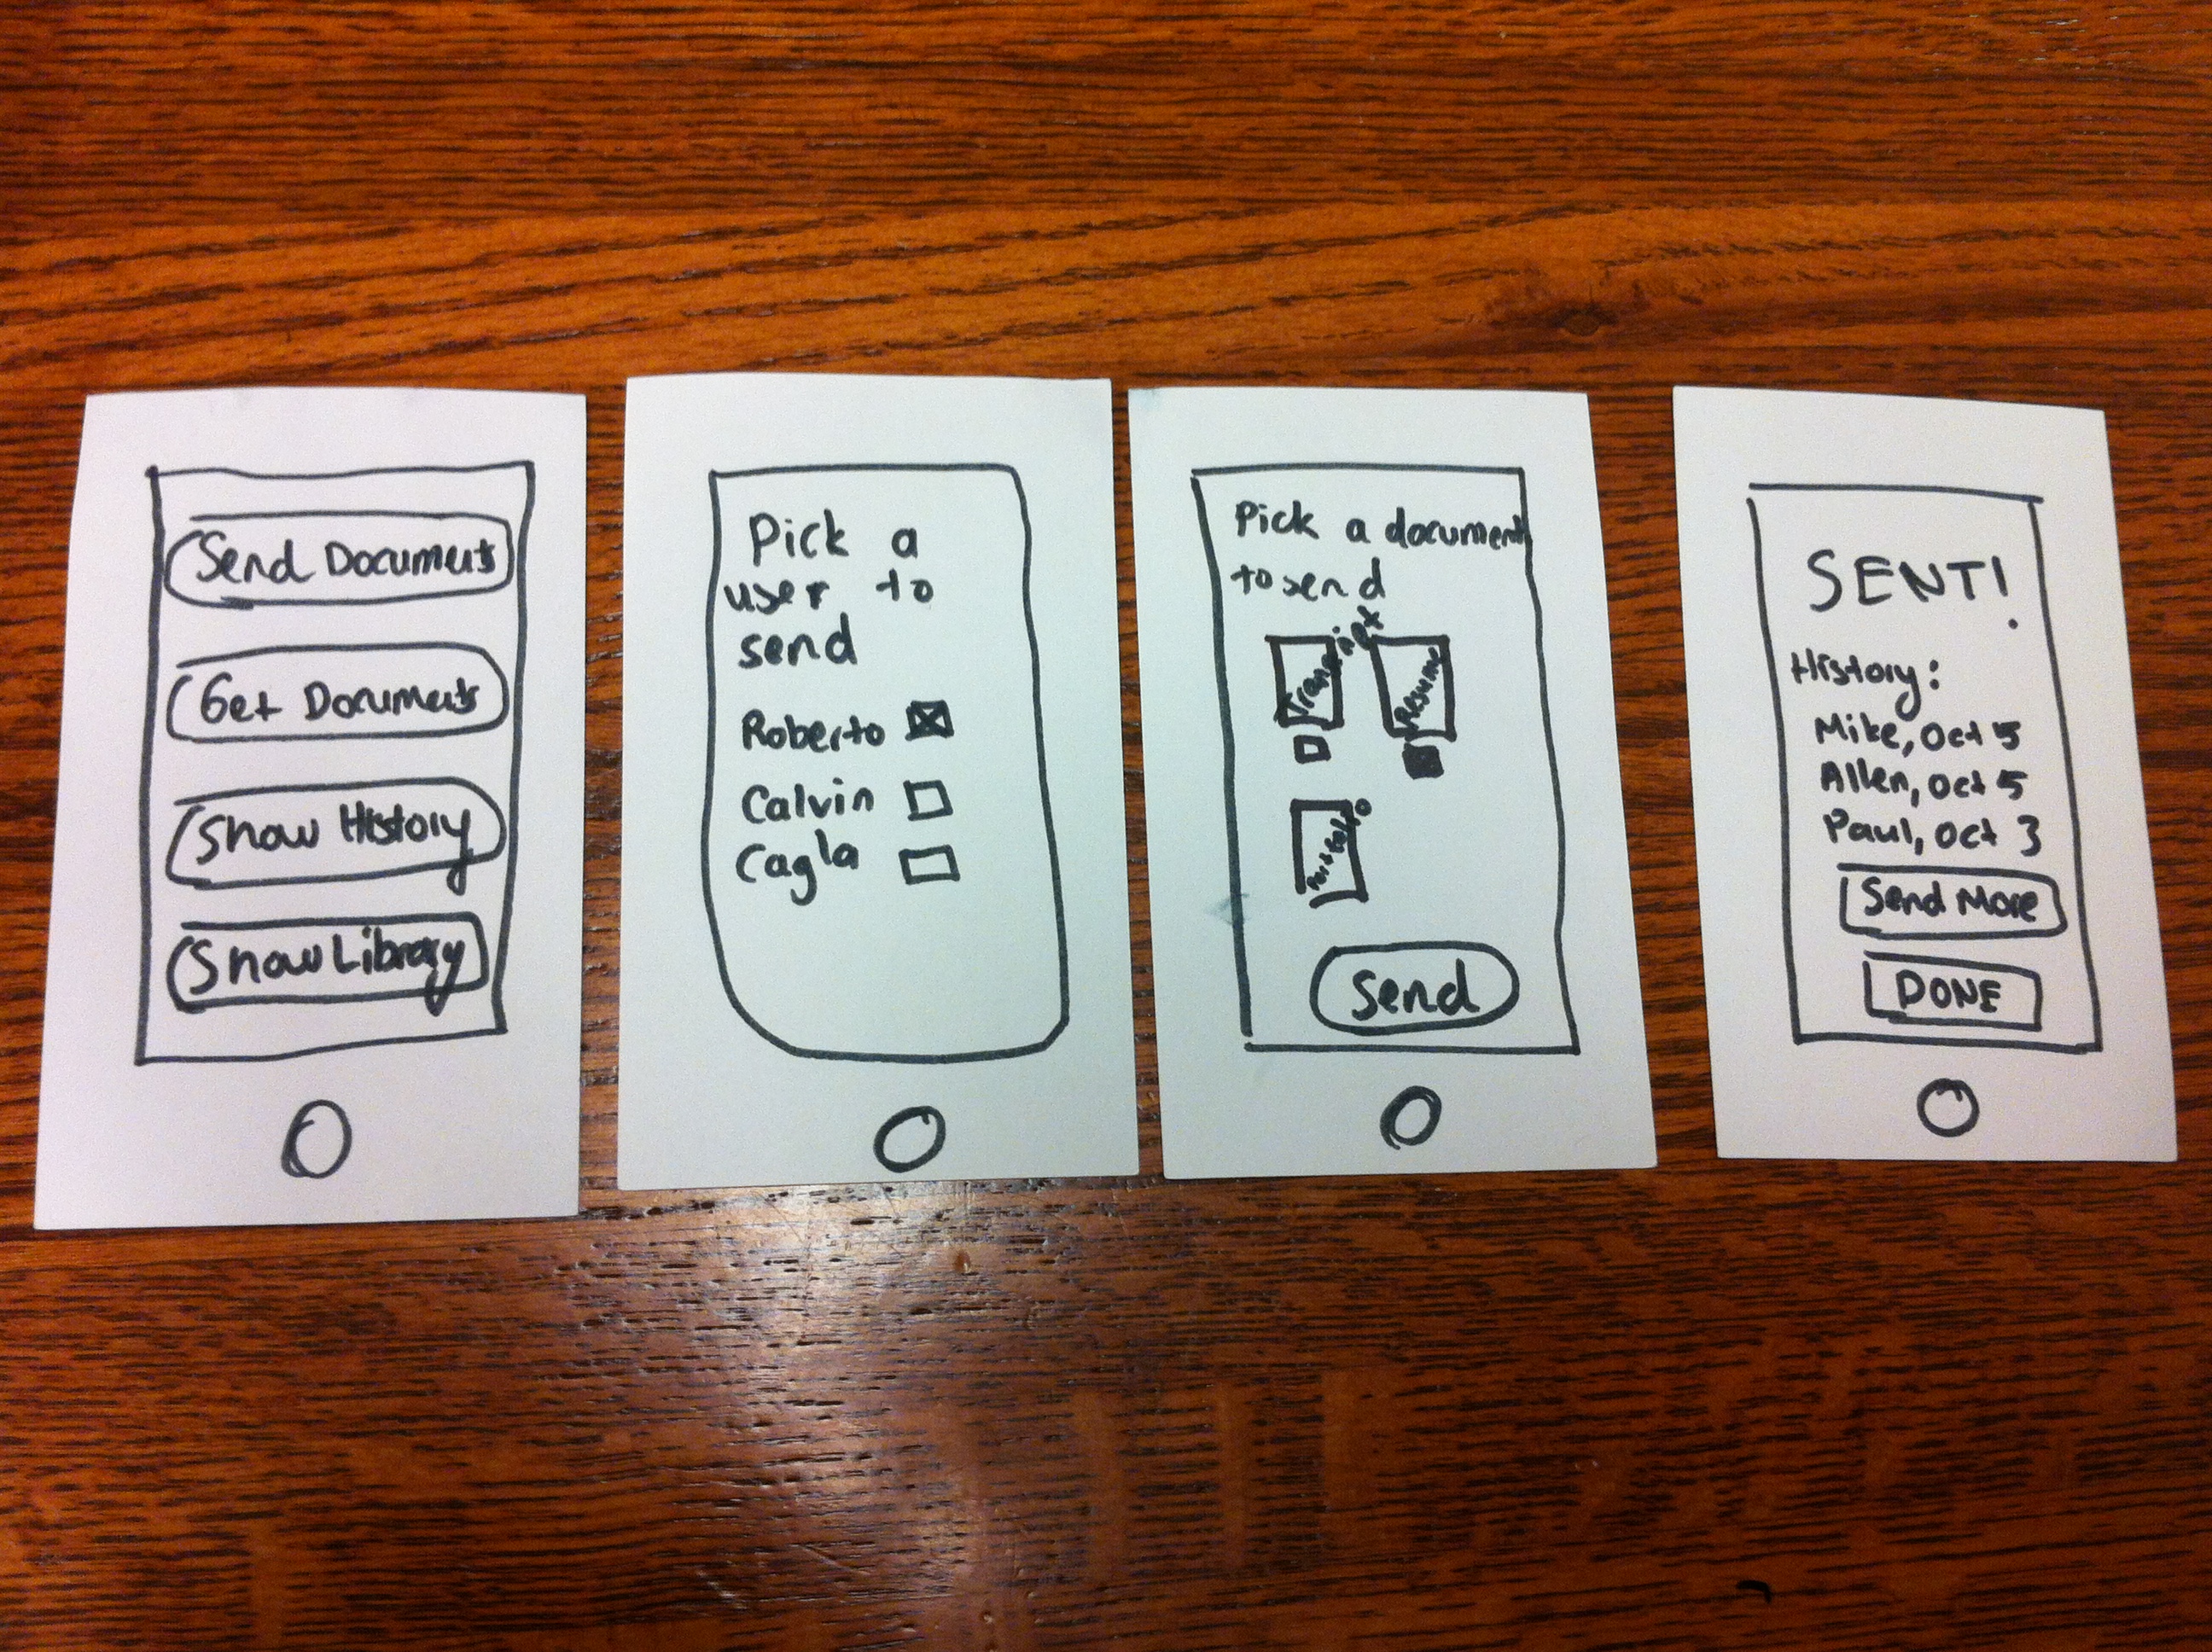 Send Documents
Get Documents
Show History
Show Library
Pick a
user to
send
Roberto
Calvin
Cagla
Pick a document
to send
Transcript
Resume
Portfolio
Send
SENT!
History:
Mike, Oct 5
Allen, Oct 5
Paul, Oct 3
Send More
DONE